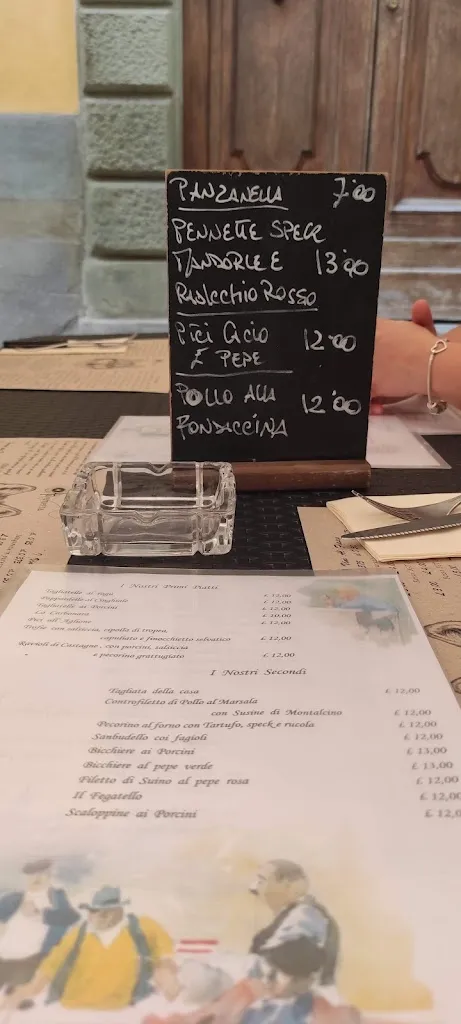 PANZANELLA 7'00
PENNETTE SPECK
MANDORLE E 13'00
RADICCHIO ROSSO
PICI CACIO 12'00
E PEPE
POLLO ALLA 12'00
FONDACCINA
I Nostri Primi Piatti
Tagliatelle al ragù £ 12,00
Pappardelle al Cinghiale £ 12,00
Tagliatelle ai Porcini £ 12,00
La Carbonara £ 10,00
Pici all' Aglione £ 12,00
Trofie con salsiccia, cipolla di tropea,
capuliato e finocchietto selvatico £ 12,00
Ravioli di Castagne , con porcini, salsiccia
e pecorino grattugiato £ 12,00
I Nostri Secondi
Tagliata della casa £ 12,00
Controfiletto di Pollo al Marsala
con Susine di Montalcino £ 12,00
Pecorino al forno con Tartufo, speck e rucola £ 12,00
Sanbudello coi fagioli £ 12,00
Bicchiere ai Porcini £ 13,00
Bicchiere al pepe verde £ 13,00
Filetto di Suino al pepe rosa £ 12,00
Il Fegatello £ 12,00
Scaloppine ai Porcini £ 12,0